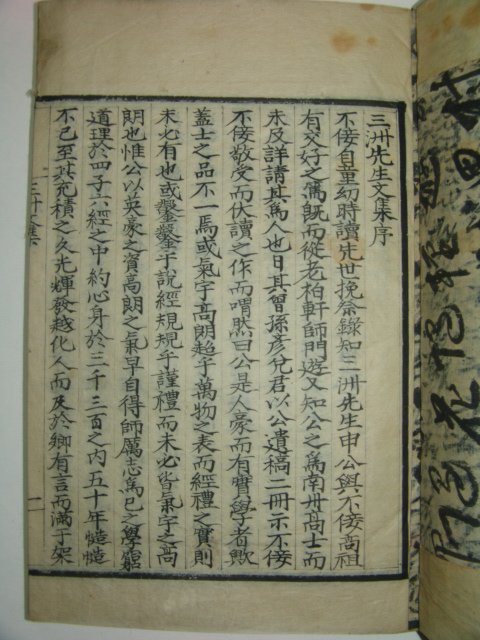 三洲先生文集序
不佞自童幼時讀先世挽祭錄知三洲先生申公與不佞高祖
有交好之篤旣而從老柏軒師門遊又知公之爲南州高士而
未及詳諸其爲人也日其曾孫彦兌君以公遺稿二冊示不佞
不佞敬受而伏讀之作而喟然曰公是人豪而有實學者歟
蓋士之品不一焉或氣宇高朗超乎萬物之表而經禮之實則
未必有也或鑿鑿乎說經規規乎謹禮而未必皆氣宇之高
朗也惟公以英豪之資高朗之氣早自得師厲志爲已之學窮
道理於四子六經之中約心身於三千三百之內五十年慥慥
不已至其充積之久光輝發越化人而及於鄕有言而滿于架
三洲文集
一